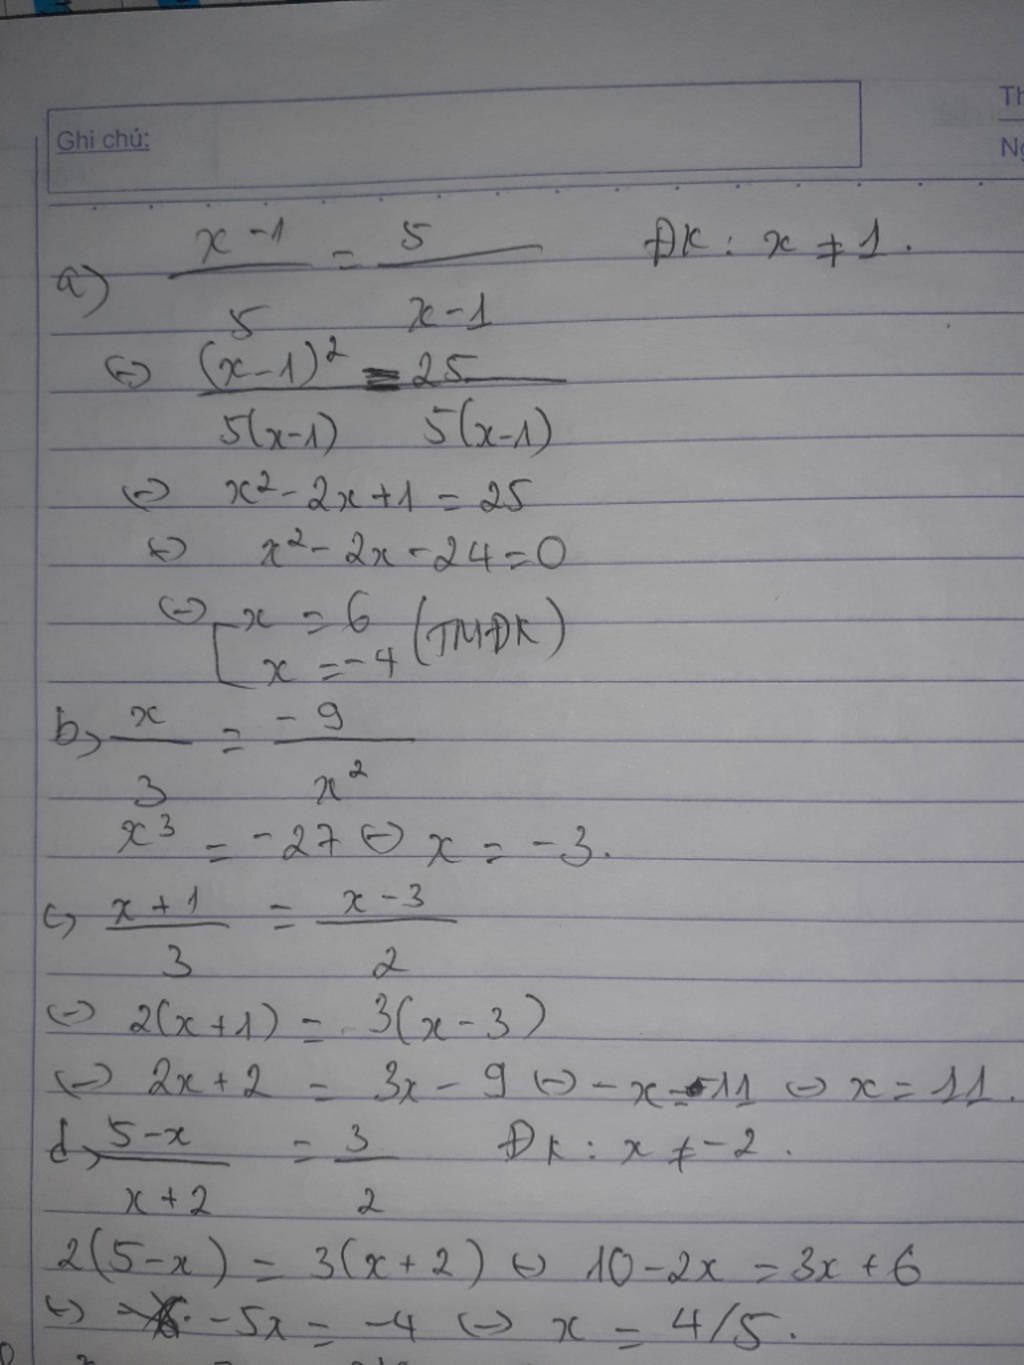 Th
Ghi chú:
Ng
a) x-1/5 = 5/x-1 ĐK: x ≠ 1.
⇔ (x-1)²/5(x-1) = 25/5(x-1)
⇔ x² - 2x + 1 = 25
⇔ x² - 2x - 24 = 0
⇔ [ x = 6
x = -4 (TMĐK)
b, x/3 = -9/x²
x³ = -27 ⇔ x = -3.
c, x+1/3 = x-3/2
⇔ 2(x+1) = 3(x-3)
⇔ 2x+2 = 3x - 9 ⇔ -x = -11 ⇔ x = 11.
d, 5-x/x+2 = 3/2 ĐK: x ≠ -2.
2(5-x) = 3(x+2) ⇔ 10-2x = 3x+6
⇔ -5x = -4 ⇔ x = 4/5.